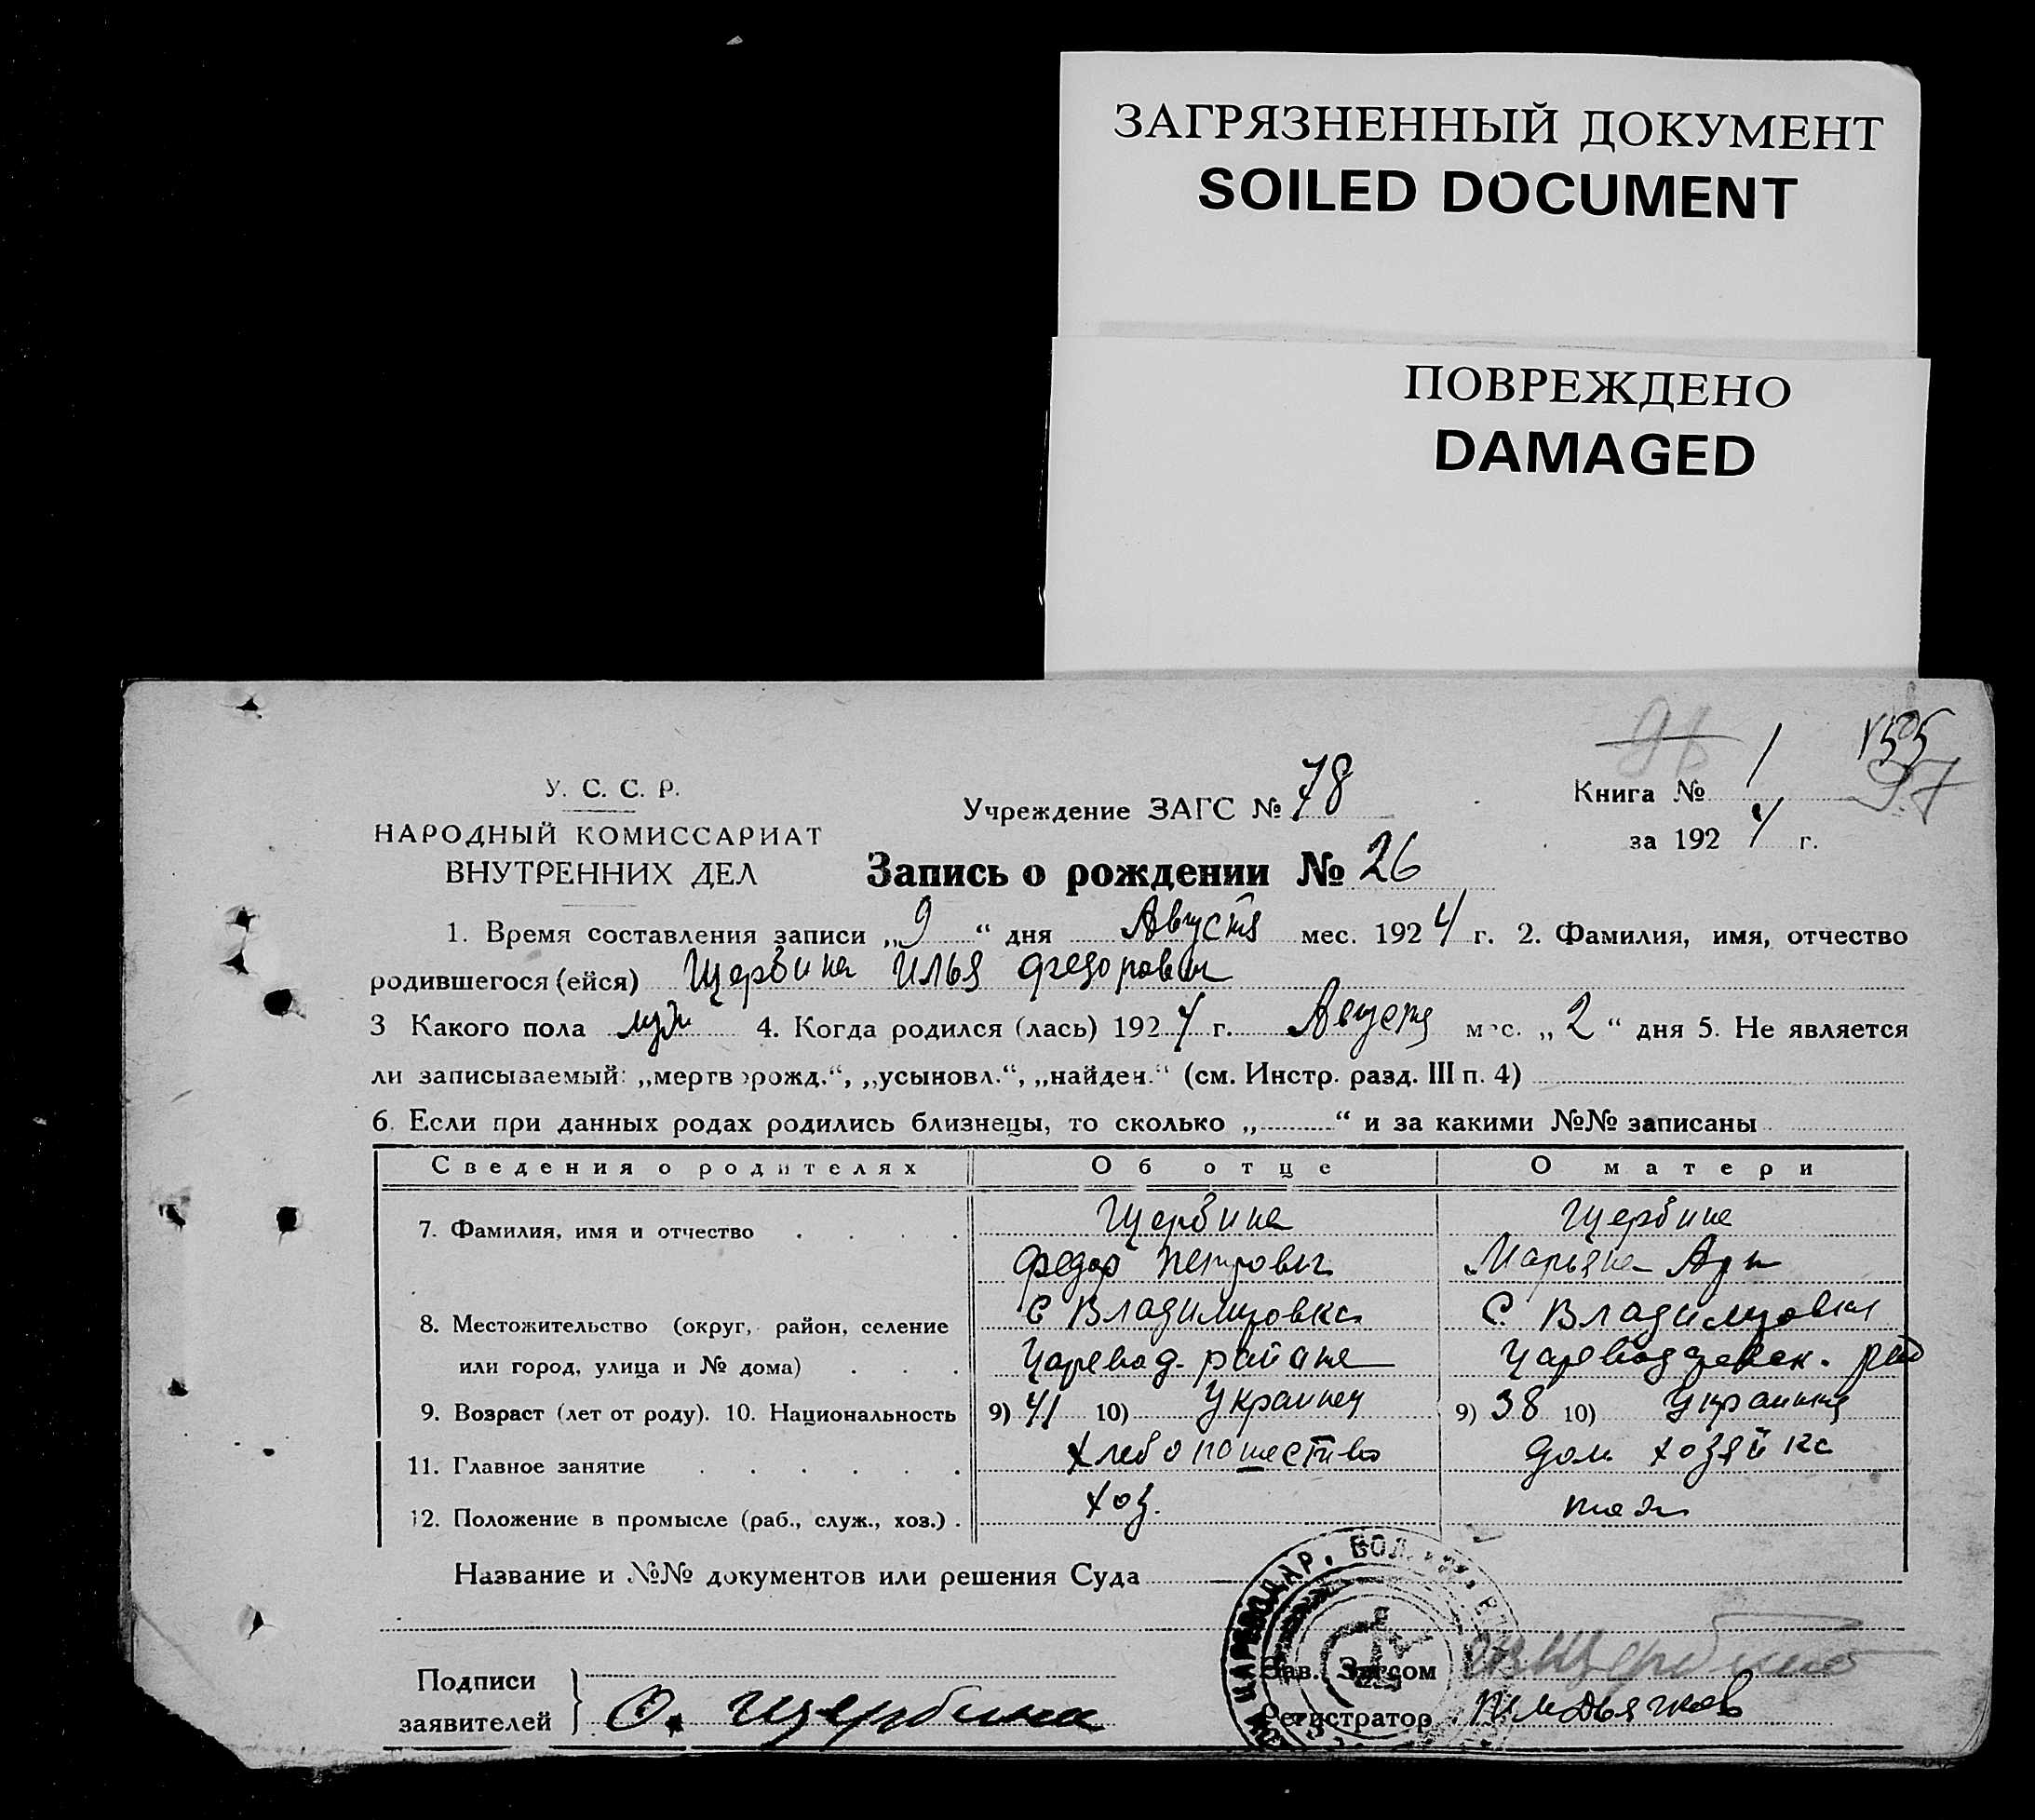 ЗАГРЯЗНЕННЫЙ ДОКУМЕНТ
SOILED DOCUMENT
ПОВРЕЖДЕНО
DAMAGED
96
155
97
У. С. С. Р.
НАРОДНЫЙ КОМИССАРИАТ
ВНУТРЕННИХ ДЕЛ
Учреждение ЗАГС № 78
Книга № 1
за 1924 г.
Запись о рождении № 26
1. Время составления записи „9“ дня Августа мес. 1924 г. 2. Фамилия, имя, отчество
родившегося (ейся) Щербина Илья Федорович
3 Какого пола муж 4. Когда родился (лась) 1924 г. Августа мес. „2“ дня 5. Не является
ли записываемый: „мертворожд.“, „усыновл.“, „найден.“ (см. Инстр. разд. III п. 4)
6. Если при данных родах родились близнецы, то сколько „ “ и за какими №№ записаны
Сведения о родителях Об отце О матери
7. Фамилия, имя и отчество Щербина Щербина
Федор Петрович Марьяна
8. Местожительство (округ, район, селение С Владимировка С. Владимировка
или город, улица и № дома) Царевод. района
9. Возраст (лет от роду). 10. Национальность 9) 41 10) Украинец 9) 38 10) Украинка
11. Главное занятие дом хозяйка
12. Положение в промысле (раб., служ., хоз.) хоз.
Название и №№ документов или решения Суда
Подписи
заявителей
Ф. Щербина
Зав. Загсом Щербина
Регистратор